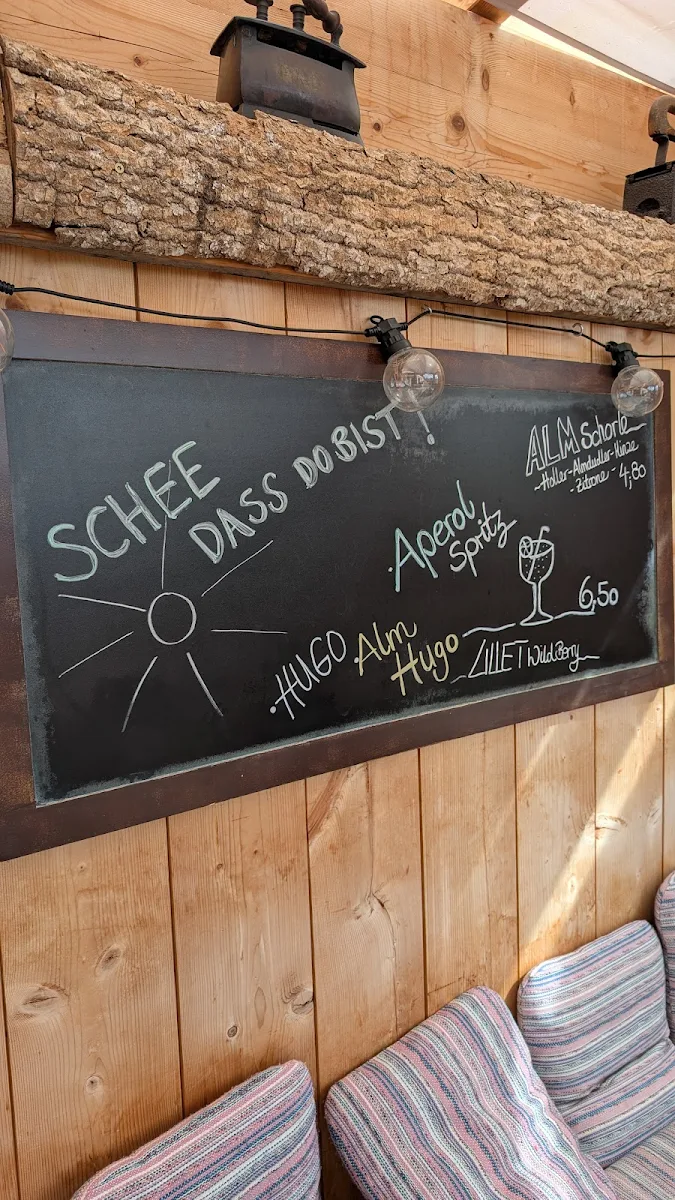 SCHEE
DASS DO BIST!
ALM Schorle
-Holler-Almdudler-Minze
-Zitrone- 4,80
·Aperol
Spritz
6,50
·HUGO
·Alm
Hugo
LILLET WildBerry